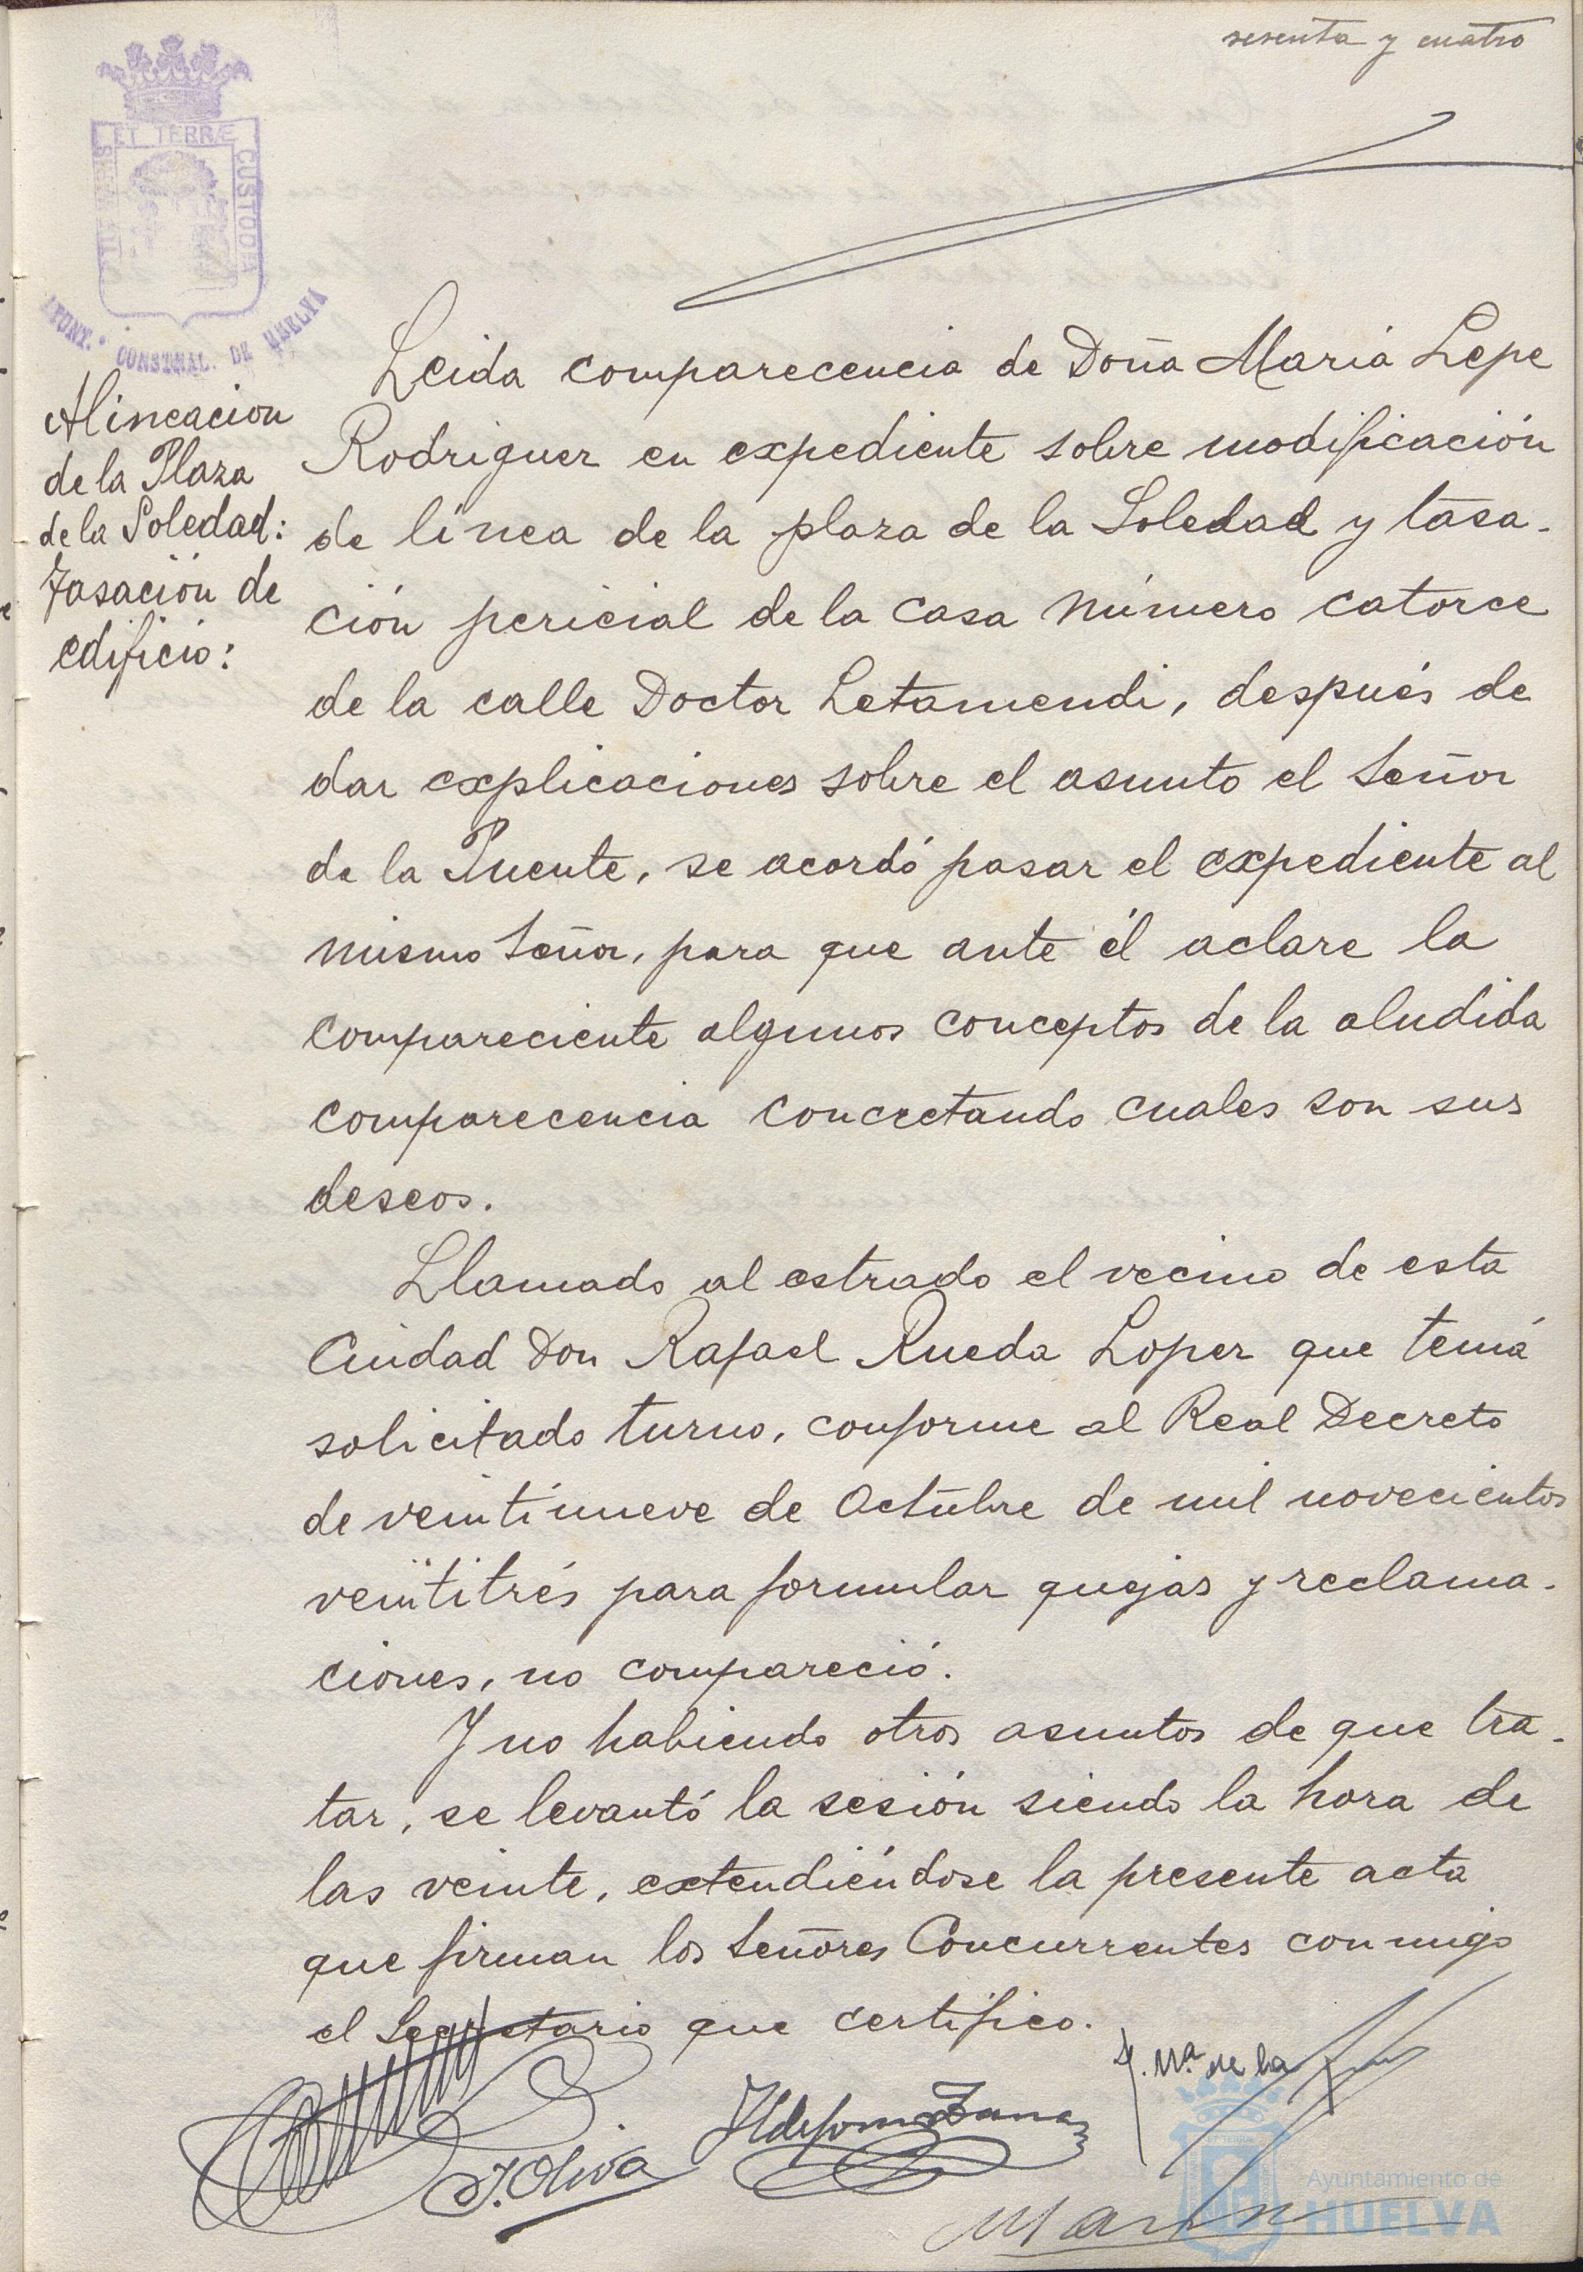 sesenta y cuatro
ET TERRÆ
CUSTODIA
AYUNT.º CONSTNAL. DE HUELVA
Alineacion
de la Plaza
de la Soledad:
Tasación de
edificio:
Leida comparecencia de Doña Maria Lepe
Rodriguez en expediente sobre modificación
de linea de la plaza de la Soledad y tasa-
ción pericial de la casa número catorce
de la calle Doctor Letamendi, después de
dar explicaciones sobre el asunto el Señor
de la Puente, se acordó pasar el expediente al
mismo Señor, para que ante él aclare la
compareciente algunos conceptos de la aludida
comparecencia concretando cuales son sus
deseos.
Llamado al estrado el vecino de esta
Ciudad Don Rafael Rueda Lopez que tenia
solicitado turno, conforme al Real Decreto
de veintinueve de Octubre de mil novecientos
veintitrés para formular quejas y reclama-
ciones, no compareció.
Y no habiendo otros asuntos de que tra-
tar, se levantó la sesión siendo la hora de
las veinte, extendiéndose la presente acta
que firman los Señores Concurrentes conmigo
el Secretario que certifico.
J. Mª de la
Ildefonso
J. Oliva
Ayuntamiento de
HUELVA